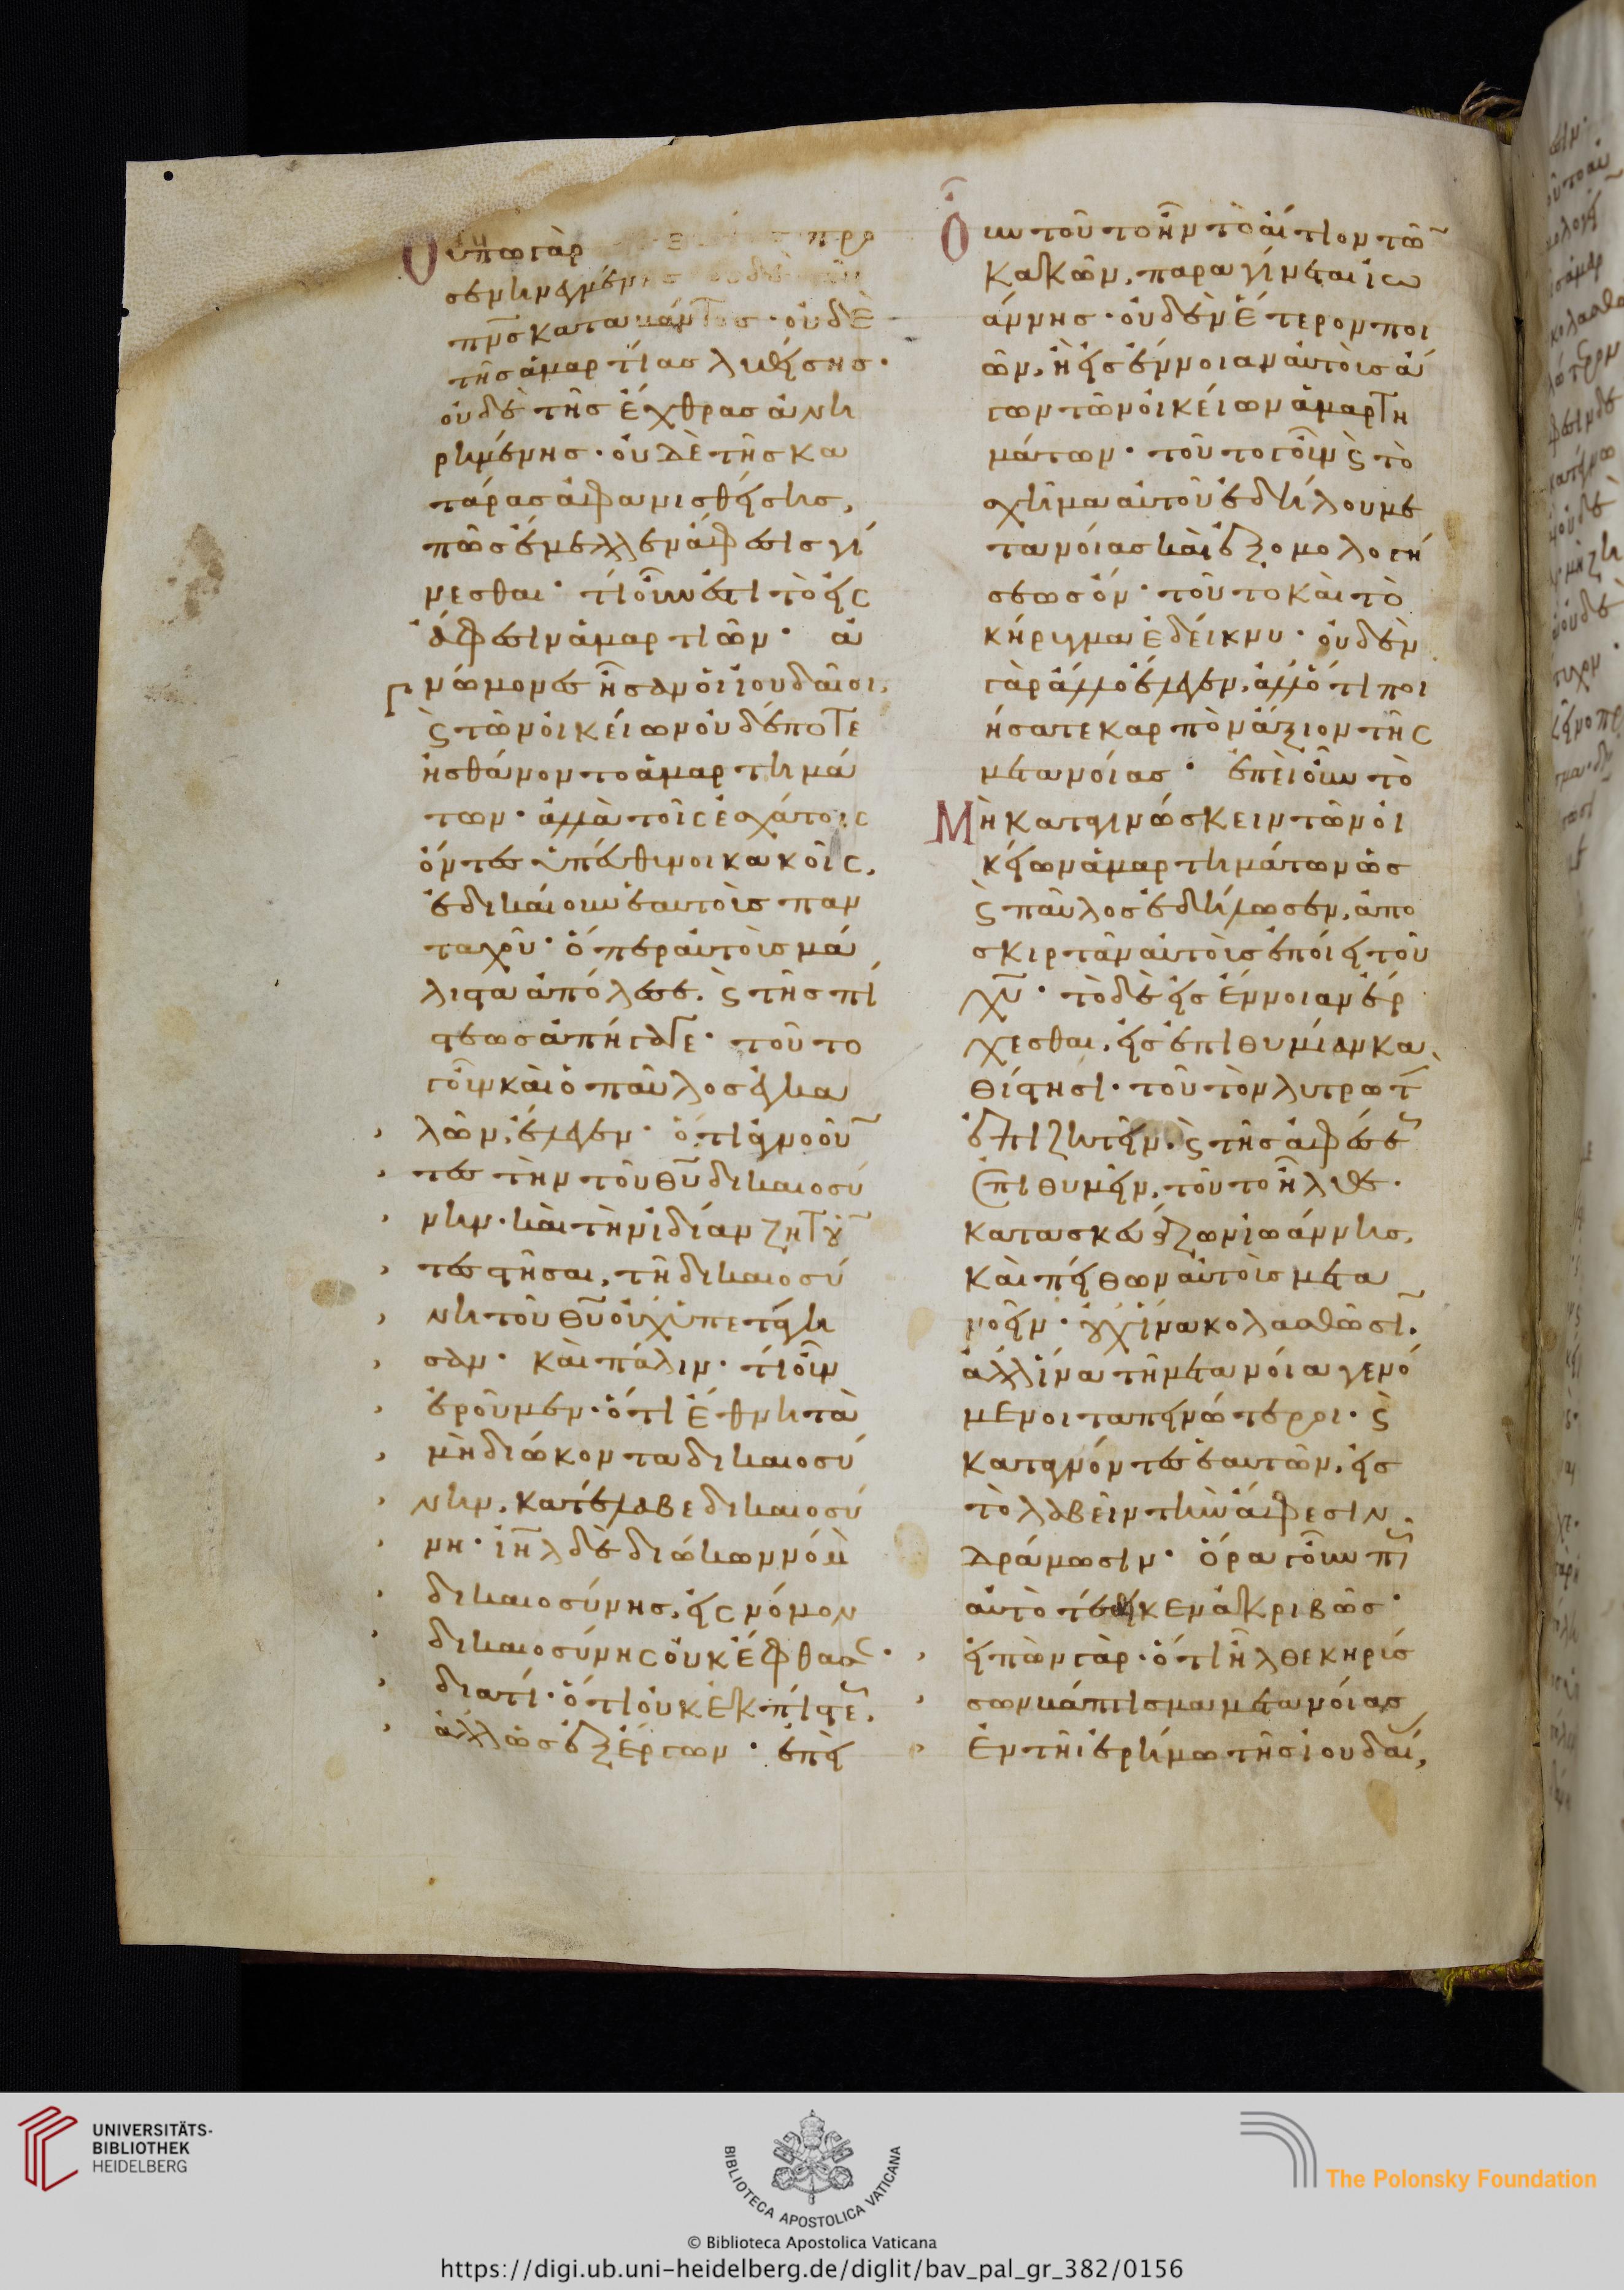 Οὔπω γὰρ
σενηνεγμένης οὐδὲ
πνς καταβάντος· οὐδὲ
τῆς ἁμαρτίας λυθείσης·
οὐδὲ τῆς ἔχθρας ἀνη
ρημένης· οὐδὲ τῆς κα
τάρας ἀφανισθείσης,
πῶς ἔμελλεν ἄφεσις γί
νεσθαι· τί οὖν ἐστι τὸ εἰς
ἄφεσιν ἁμαρτιῶν· ἀ
γνώμονες ἦσαν οἱ ἰουδαῖοι,
ϛ τῶν οἰκείων οὐδέποτε
ἠσθάνοντο ἁμαρτημά
των· ἀλλὰ τοῖς ἐσχάτοις
ὄντες ὑπεύθυνοι κακοῖς,
ἐδικαίουν ἑαυτοὺς παν
ταχοῦ· ὅπερ αὐτοὺς μά
λιστα ἀπόλεσε. ϛ τῆς πί
στεως ἀπήγαγε· τοῦτο
γοῦν καὶ ὁ παῦλος ἐγκα
λῶν, ἔλεγεν· ὅτι ἀγνοοῦν
τες τὴν τοῦ θυ δικαιοσύ
νην· καὶ τὴν ἰδίαν ζητοῦν
τες στῆσαι, τῆ δικαιοσύ
νη τοῦ θυ οὐχ ὑπετάγη
σαν· καὶ πάλιν· τί οὖν
ἐροῦμεν· ὅτι ἔθνη τὰ
μὴ διώκοντα δικαιοσύ
νην, κατέλαβε δικαιοσύ
νη· ιηλ δὲ διώκων νόμον
δικαιοσύνης, εἰς νόμον
δικαιοσύνης οὐκ ἔφθασε·
διατί· ὅτι οὐκ ἐκ πίστεως,
ἀλλ' ὡς ἐξ ἔργων· ἐπεὶ
Οὖν τοῦτο ἦν τὸ αἴτιον τῶν
κακῶν, παραγίνεται ἰω
άννης· οὐδὲν ἕτερον ποι
ῶν, ἢ εἰς ἔννοιαν αὐτοὺς ἄ
γων τῶν οἰκείων ἁμαρτη
μάτων· τοῦτο γοῦν ϛ τὸ
σχῆμα αὐτοῦ ἐδήλου με
τανοίας καὶ ἐξομολογή
σεως ὄν· τοῦτο καὶ τὸ
κήρυγμα ἐδείκνυ· οὐδὲν
γὰρ ἄλλο ἔλεγεν, ἀλλ' ὅτι ποι
ήσατε καρπὸν ἄξιον τῆς
μετανοίας· ἐπεὶ οὖν τὸ
Μὴ καταγινώσκειν τῶν οἰ
κείων ἁμαρτημάτων ὡς
ϛ παῦλος ἐδήλωσεν, ἀπο
σκιρτᾶν αὐτοὺς ἐποίει τοῦ
χυ· τὸ δὲ εἰς ἔννοιαν ἔρ
χεσθαι, εἰς ἐπιθυμίαν κα
θίστησι· τοῦ τὸν λυτρωτὴν
ἐπιζητεῖν, ϛ τῆς ἀφέσεως
ἐπιθυμεῖν, τοῦτο ἦλθε
κατασκευάζων ἰωάννης,
καὶ πείθων αὐτοὺς μετα
νοεῖν· οὐχ ἵνα κολασθῶσιν.
ἀλλ' ἵνα τῆ μετανοία γενό
μενοι ταπεινότεροι· ϛ
καταγνόντες ἑαυτῶν, εἰς
τὸ λαβεῖν τὴν ἄφεσιν,
δράμωσιν· ὅρα γοῦν πῶς
αὐτὸ τέθεικεν ἀκριβῶς·
εἰπὼν γὰρ· ὅτι ἦλθε κηρύσ
σων βάπτισμα μετανοίας
ἐν τῆ ἐρήμω τῆς ἰουδαίας,
UNIVERSITÄTS-
BIBLIOTHEK
HEIDELBERG
BIBLIOTECA APOSTOLICA VATICANA
© Biblioteca Apostolica Vaticana
The Polonsky Foundation
https://digi.ub.uni-heidelberg.de/diglit/bav_pal_gr_382/0156